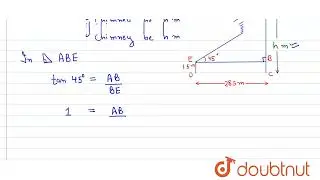 chimney be h m
In △ ABE
tan 45° = AB / BE
1 = AB
E 45° B
1.5 m
D C
28.5 m
h m
doubtnut